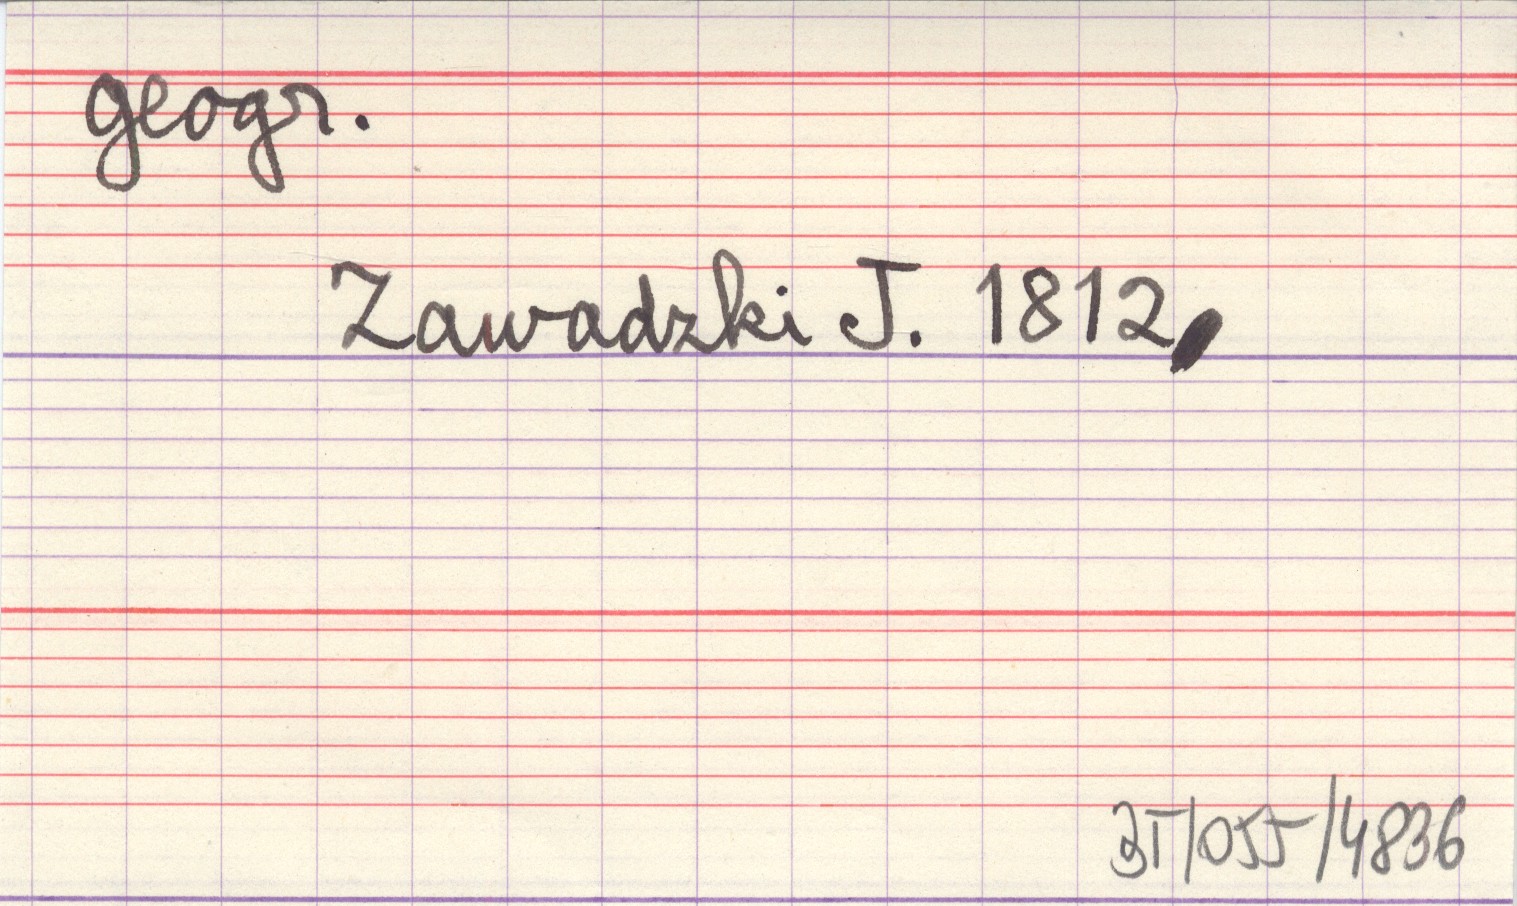 geogr.
Zawadzki J. 1812
BT/055/4836